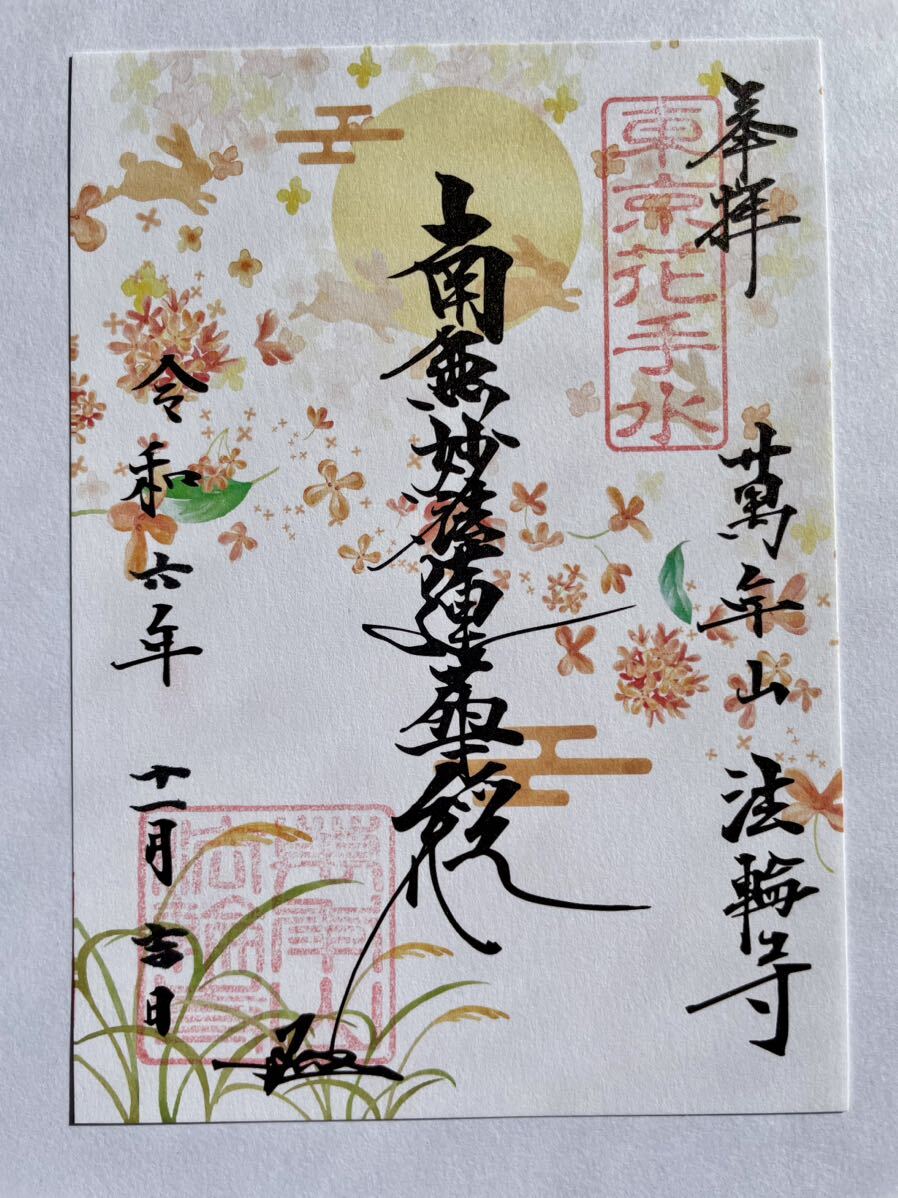 奉拝
東京花手水
萬年山 法輪寺
南無妙法蓮華経
令和六年 十一月 吉日